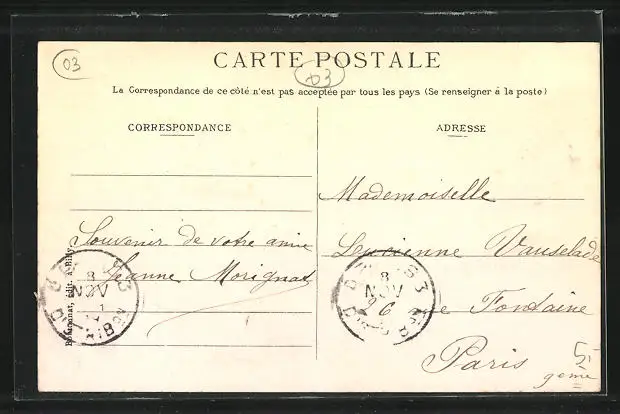 03
CARTE POSTALE
03
La Correspondance de ce côté n'est pas acceptée par tous les pays (Se renseigner à la poste)
CORRESPONDANCE
Souvenir de votre amie
Jeanne Morignat
édit. à
8
NOV
ADRESSE
Mademoiselle
Lucienne Vauselade
26 Rue Fontaine
Paris
9ème
8
NOV